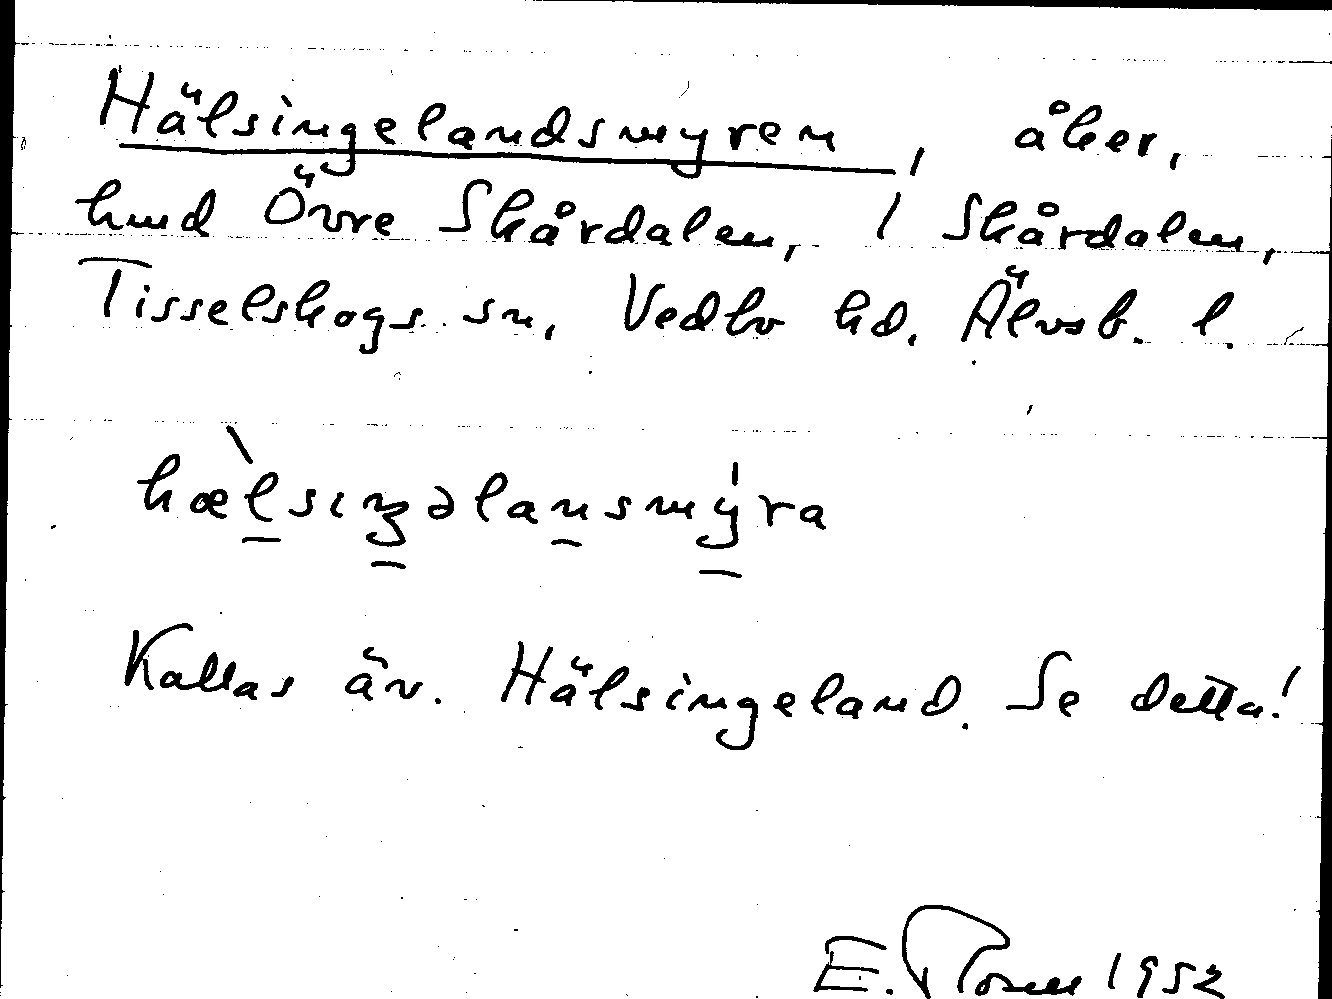 Hälsingelandsmyren, åker,
hmd Övre Skårdalen, 1 Skårdalen,
Tisselskogs sn, Vedbo hd. Älvsb. l.
hæ̀lsıŋəlansmy̍ra
Kallas äv. Hälsingeland. Se detta!
E. 1952